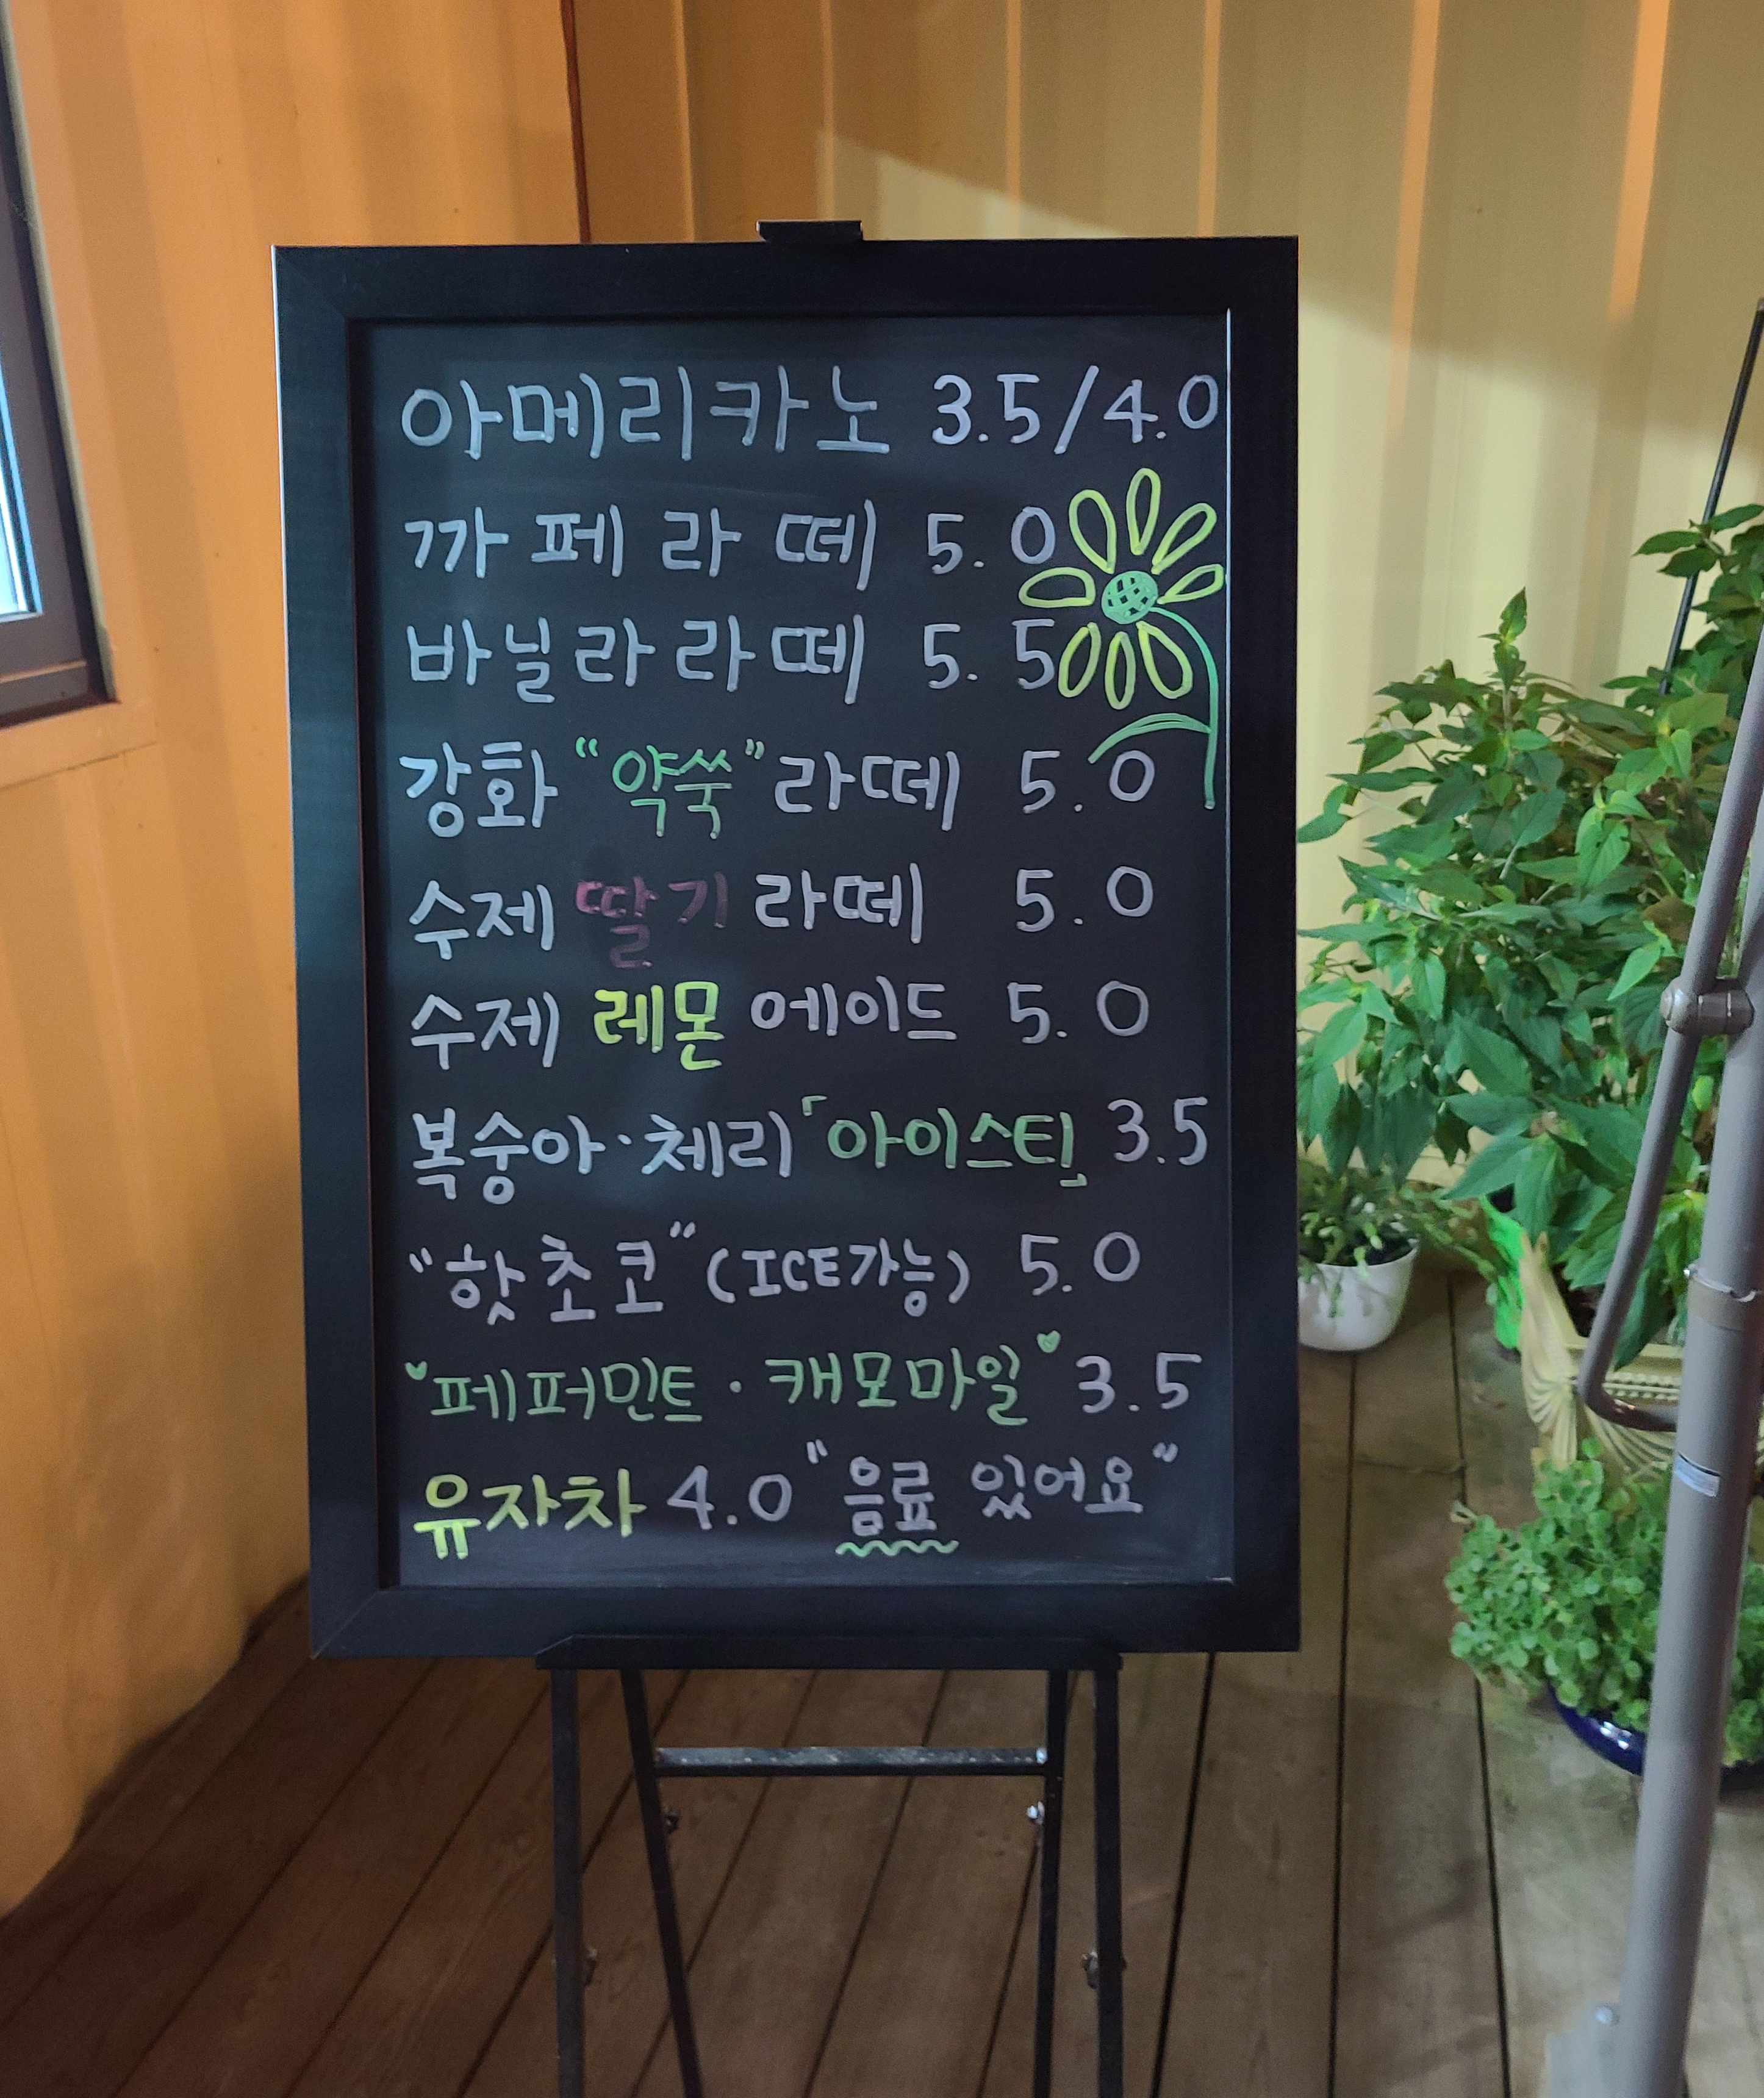 아메리카노 3.5/4.0
까페라떼 5.0
바닐라라떼 5.5
강화 "약쑥" 라떼 5.0
수제 딸기 라떼 5.0
수제 레몬 에이드 5.0
복숭아·체리「아이스티」 3.5
"핫초코" (ICE가능) 5.0
페퍼민트·캐모마일 3.5
유자차 4.0 "음료 있어요"